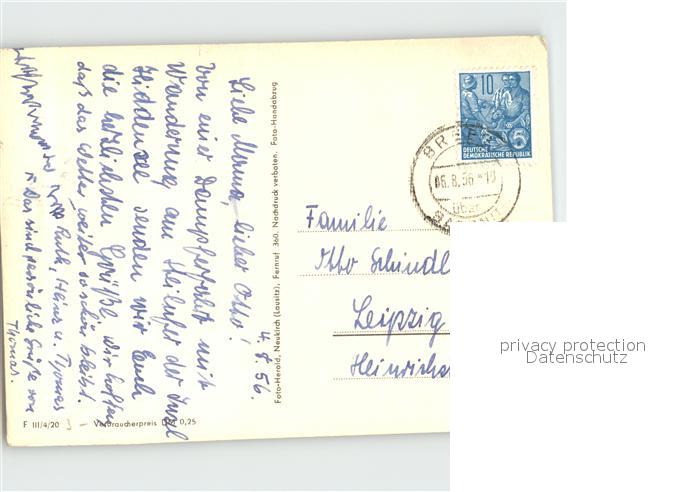 4. 8. 56.
Liebe Mama, lieber Otto!
Von einer Dampferfahrt mit
Wanderung am Steilufer der Insel
Hiddensee senden wir Euch
die herzlichsten Grüße. Wir hoffen
daß das Wetter weiter so schön bleibt.
Ruth, Heinz u. Thomas
Das sind persönliche Grüße von
Thomas.
Foto-Herold, Neukirch (Lausitz), Fernruf 360. Nachdruck verboten. Foto-Handabzug
F III/4/20
Verbraucherpreis DM 0,25
10
DEUTSCHE
DEMOKRATISCHE REPUBLIK
5
06.8.56
über
Familie
Otto Schindl
Leipzig
Heinrich
privacy protection
Datenschutz